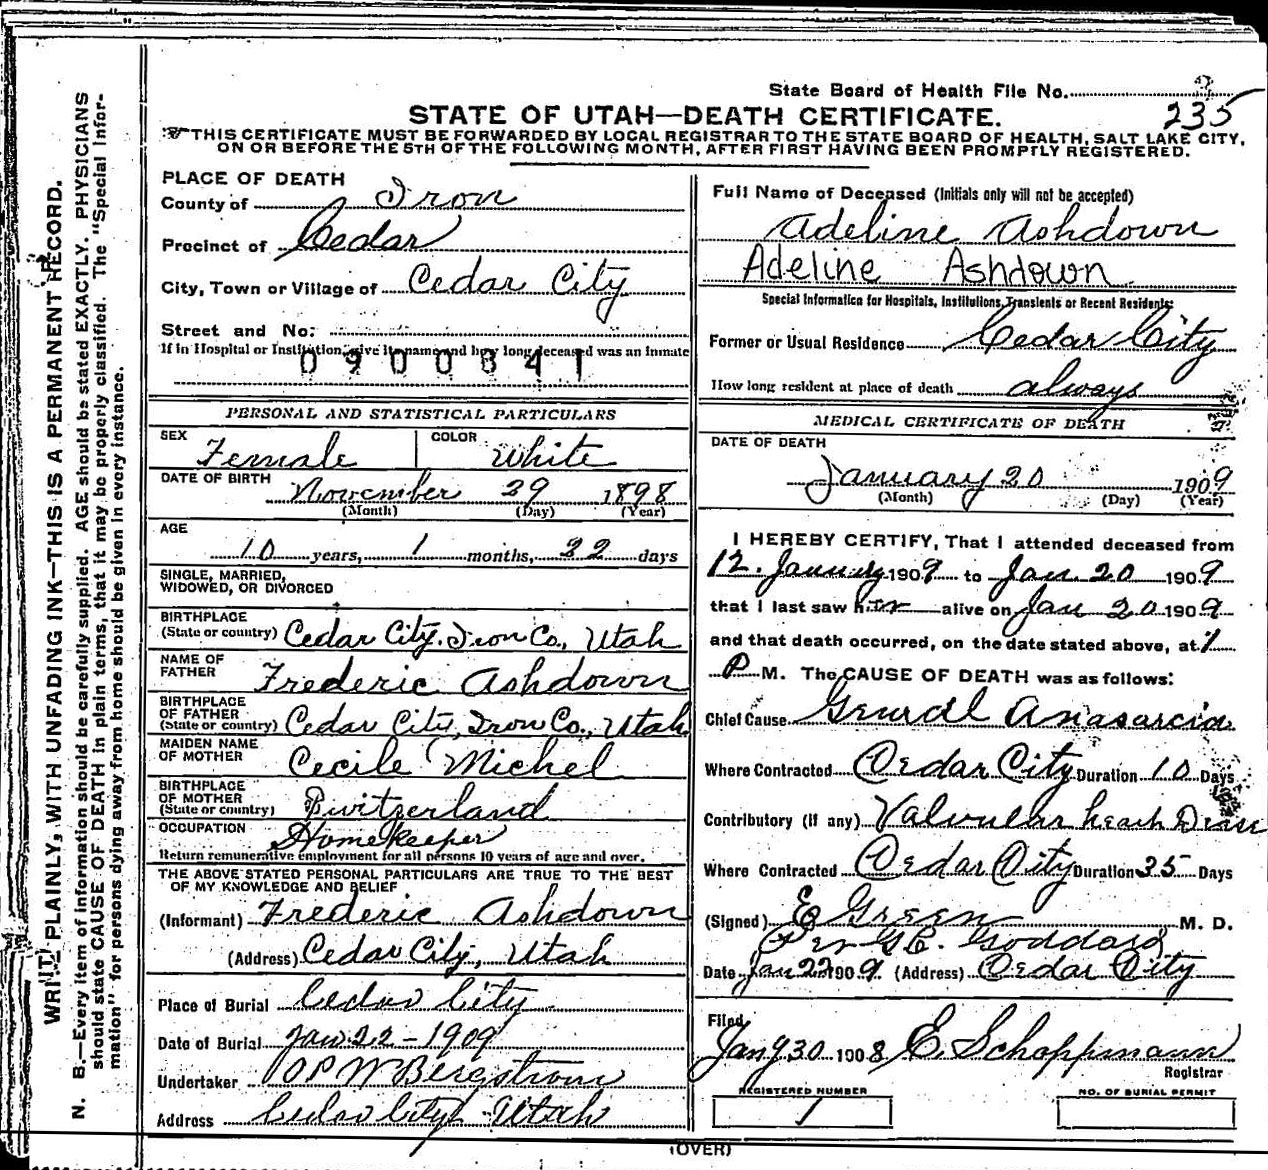 State Board of Health File No.
235
STATE OF UTAH—DEATH CERTIFICATE.
THIS CERTIFICATE MUST BE FORWARDED BY LOCAL REGISTRAR TO THE STATE BOARD OF HEALTH, SALT LAKE CITY,
ON OR BEFORE THE 5TH OF THE FOLLOWING MONTH, AFTER FIRST HAVING BEEN PROMPTLY REGISTERED.
WRITE PLAINLY, WITH UNFADING INK—THIS IS A PERMANENT RECORD.
N. B.—Every item of information should be carefully supplied. AGE should be stated EXACTLY. PHYSICIANS
should state CAUSE OF DEATH in plain terms, that it may be properly classified. The "Special Infor-
mation" for persons dying away from home should be given in every instance.
PLACE OF DEATH
County of Iron
Precinct of Cedar
City, Town or Village of Cedar City
Street and No:
If in Hospital or Institution, give its name and how long deceased was an inmate
0900341
PERSONAL AND STATISTICAL PARTICULARS
SEX Female COLOR White
DATE OF BIRTH November 29 1898
(Month) (Day) (Year)
AGE
10 years, 1 months, 22 days
SINGLE, MARRIED,
WIDOWED, OR DIVORCED
BIRTHPLACE
(State or country) Cedar City. Iron Co., Utah
NAME OF
FATHER Frederic Ashdown
BIRTHPLACE
OF FATHER
(State or country) Cedar City, Iron Co., Utah
MAIDEN NAME
OF MOTHER Cecile Michel
BIRTHPLACE
OF MOTHER
(State or country) Switzerland
OCCUPATION Homekeeper
Return remunerative employment for all persons 10 years of age and over.
THE ABOVE STATED PERSONAL PARTICULARS ARE TRUE TO THE BEST
OF MY KNOWLEDGE AND BELIEF
(Informant) Frederic Ashdown
(Address) Cedar City, Utah
Place of Burial Cedar City
Date of Burial Jan 22 - 1909
Undertaker Bergstrom
Address Cedar City Utah
Full Name of Deceased (Initials only will not be accepted)
Adeline Ashdown
Adeline Ashdown
Special Information for Hospitals, Institutions, Transients or Recent Residents:
Former or Usual Residence Cedar City
How long resident at place of death always
MEDICAL CERTIFICATE OF DEATH
DATE OF DEATH
January 20 1909
(Month) (Day) (Year)
I HEREBY CERTIFY, That I attended deceased from
12. January 1909 to Jan. 20 1909
that I last saw her alive on Jan 20 1909
and that death occurred, on the date stated above, at 1
P M. The CAUSE OF DEATH was as follows:
Chief Cause General Anasarcia
Where Contracted Cedar City Duration 10 Days
Contributory (if any) Valvular heart
Where Contracted Cedar City Duration 35 Days
(Signed) E Green M. D.
Per Goddard
Date Jan 22 1909. (Address) Cedar City
Filed
Jany 30 1908 E. Schoppmann
Registrar
REGISTERED NUMBER
1
NO. OF BURIAL PERMIT
(OVER)